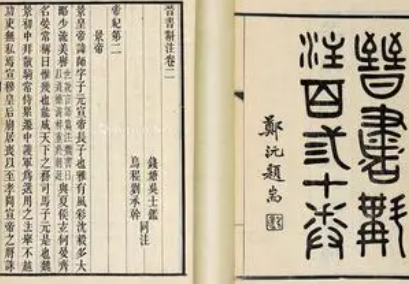 晉書斠
注百弎十卷
鄭沅題耑
晉書斠注卷二
錢塘吳士鑑
烏程劉承幹 同注
帝紀第二
景帝
景皇帝諱師字子元宣帝長子也雅有風彩沈毅多大
略少流美譽與夏侯玄何晏齊
名晏常稱曰惟幾也能成天下之務司馬子元是也魏
景初中拜散騎常侍累遷中護軍爲選用之法舉不越
功吏無私焉宣穆皇后崩居喪以至孝聞宣帝之將誅